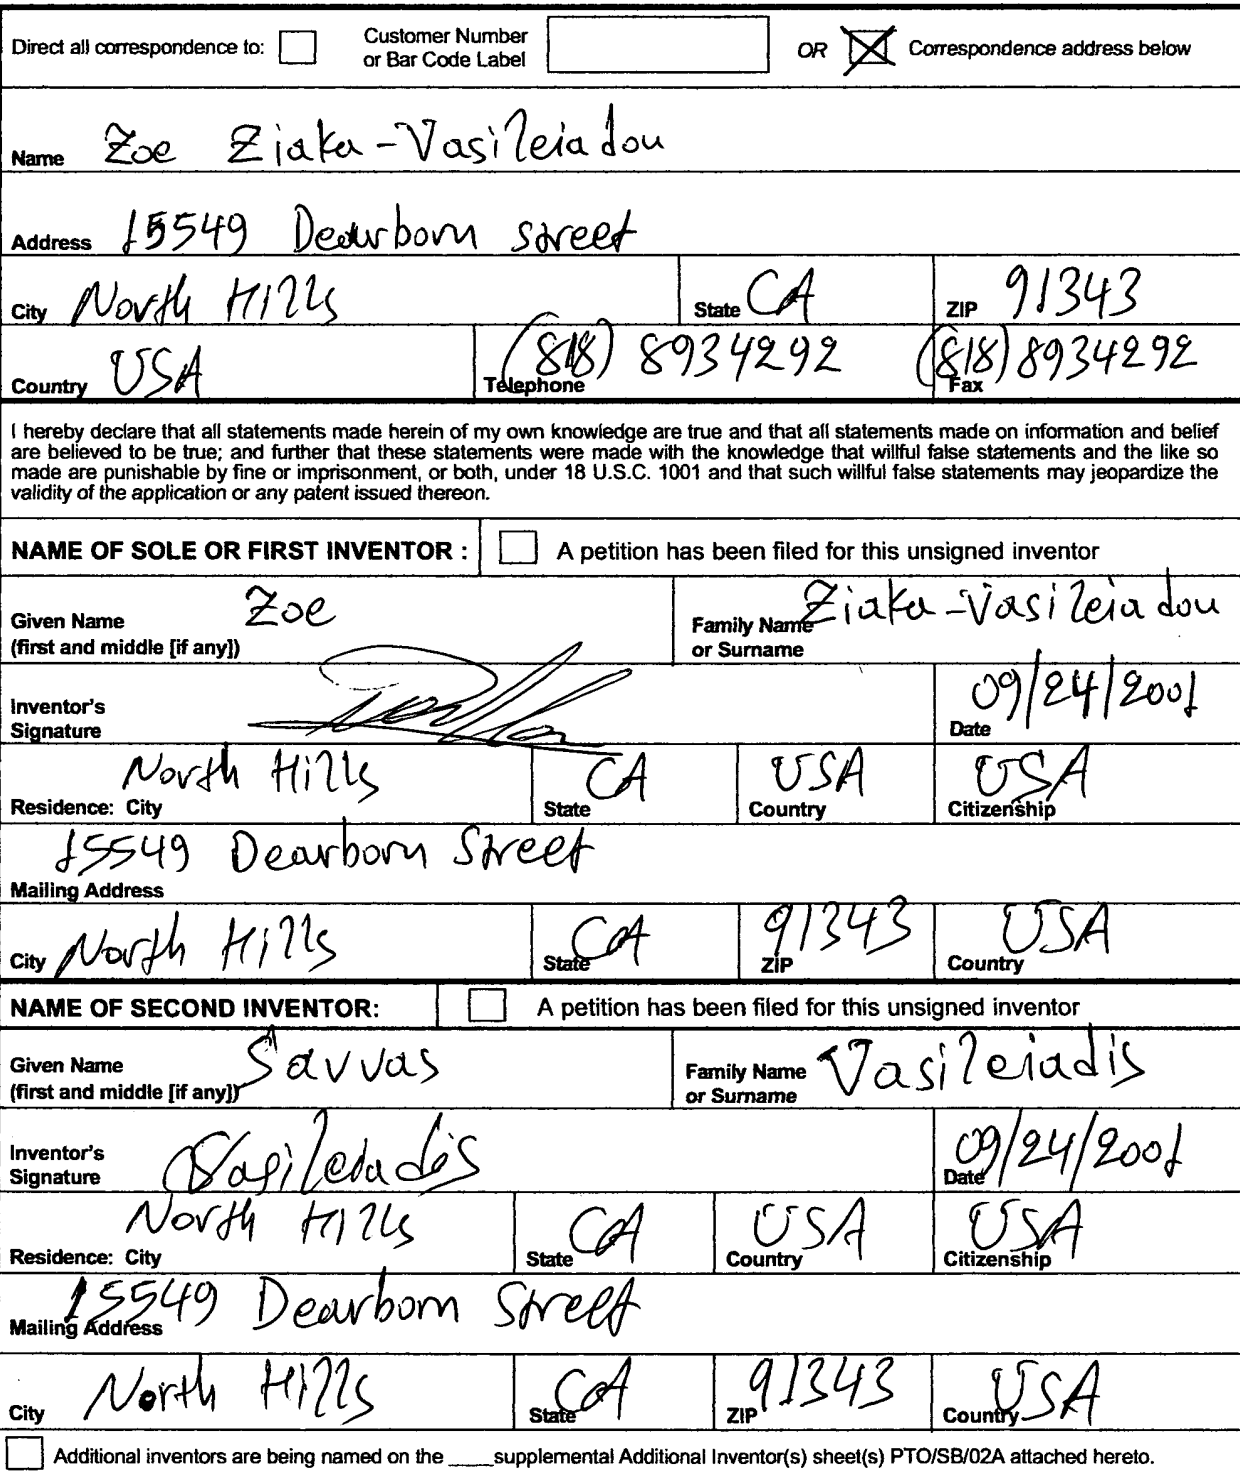 Direct all correspondence to: Customer Number or Bar Code Label OR Correspondence address below
Name Zoe Ziaka-Vasileiadou
Address 15549 Dearborn street
City North Hills State CA ZIP 91343
Country USA Telephone (818) 8934292 Fax (818) 8934292
I hereby declare that all statements made herein of my own knowledge are true and that all statements made on information and belief
are believed to be true; and further that these statements were made with the knowledge that willful false statements and the like so
made are punishable by fine or imprisonment, or both, under 18 U.S.C. 1001 and that such willful false statements may jeopardize the
validity of the application or any patent issued thereon.
NAME OF SOLE OR FIRST INVENTOR : A petition has been filed for this unsigned inventor
Given Name (first and middle [if any]) Zoe Family Name or Surname Ziaka-Vasileiadou
Inventor's Signature Date 09/24/2001
Residence: City North Hills State CA Country USA Citizenship USA
Mailing Address 15549 Dearborn Street
City North Hills State CA ZIP 91343 Country USA
NAME OF SECOND INVENTOR: A petition has been filed for this unsigned inventor
Given Name (first and middle [if any]) Savvas Family Name or Surname Vasileiadis
Inventor's Signature Vasileiadis Date 09/24/2001
Residence: City North Hills State CA Country USA Citizenship USA
Mailing Address 15549 Dearborn Street
City North Hills State CA ZIP 91343 Country USA
Additional inventors are being named on the ____supplemental Additional Inventor(s) sheet(s) PTO/SB/02A attached hereto.